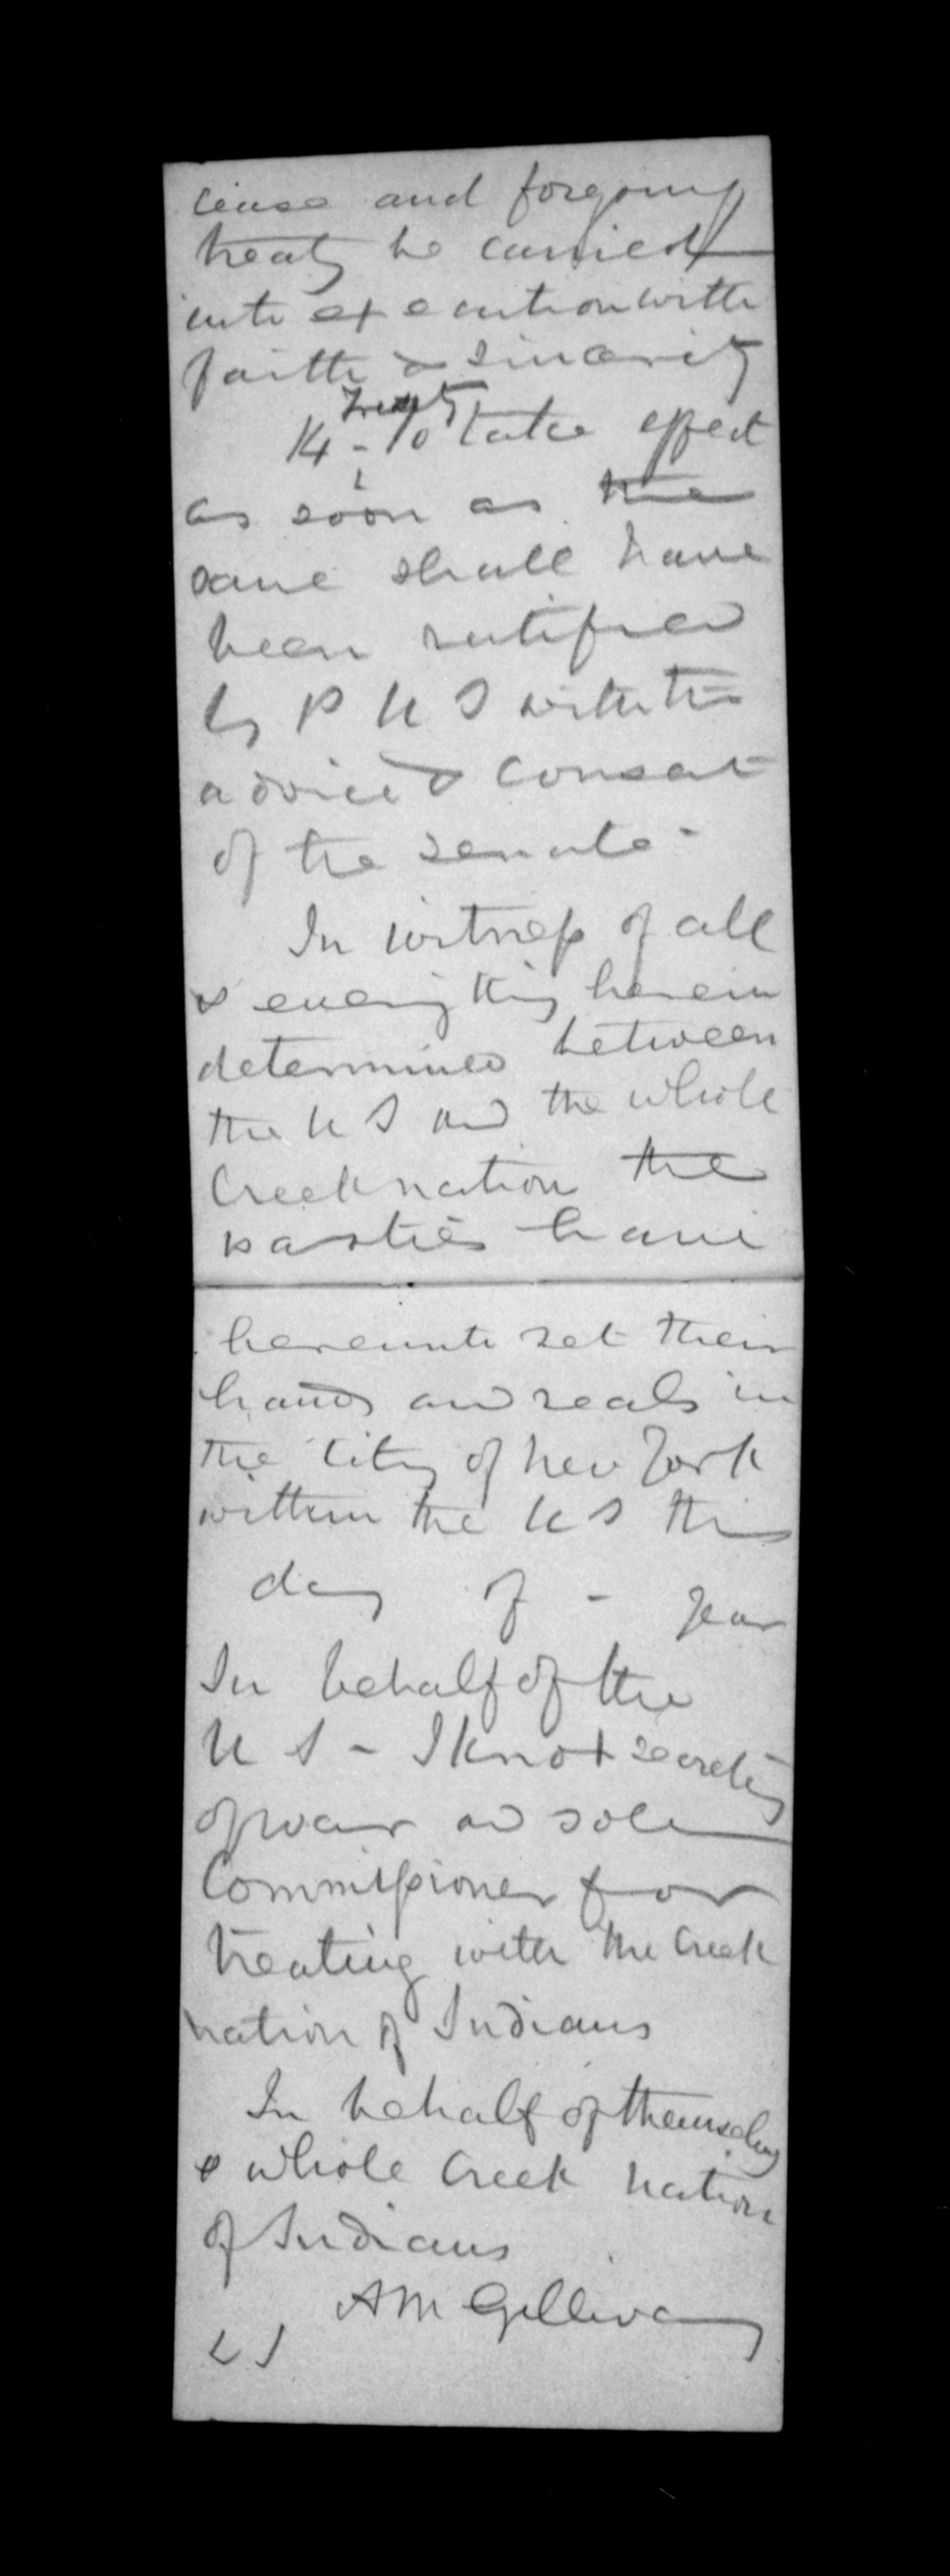 cease and forgoing
treaty be carried
into execution with
faith & sincerity
Treaty
14 - To take effect
as soon as the
same shall have
been ratified
by P U S with the
advice & consent
of the senate -
In witness of all
& every thing herein
determined between
the U S and the whole
Creek nation the
parties have
hereunto set their
hands and seals in
the City of New York
within the U S this
day of - year
In behalf of the
U S - J Knox secretary
of war and sole
Commissioner for
treating with the Creek
nation of Indians
In behalf of themselves
& whole Creek nation
of Indians
A McGillivray
L S